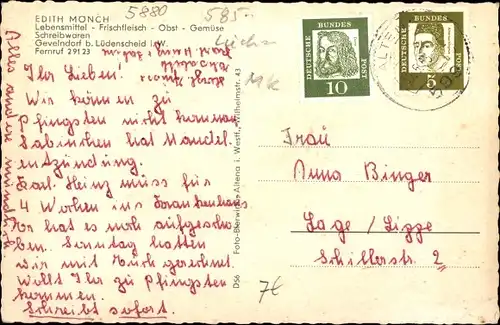 EDITH MÖNCH
Lebensmittel - Frischfleisch - Obst - Gemüse
Schreibwaren
Gevelndorf b. Lüdenscheid i.W.
Fernruf 29123
5880
585
Ihr Lieben!
Wir können zu
Pfingsten nicht kommen
Sabinchen hat Mandel
entzündung.
Karl. Heinz muss für
4 Wochen ins Krankenhaus
Er hat es noch aufgescho
ben. Sonntag hatten
wir mit Euch gerechnet.
Wollt Ihr zu Pfingsten
kommen.
Schreibt sofort.
Alles andere mündlich
D56 Foto-Bierwirth Altena i. Westf., Wilhelmstr. 43
DEUTSCHE BUNDESPOST
10
DEUTSCHE BUNDESPOST
5
ALTE
Frau
Anna Binger
Lage/Lippe
Schillerstr. 2
7€